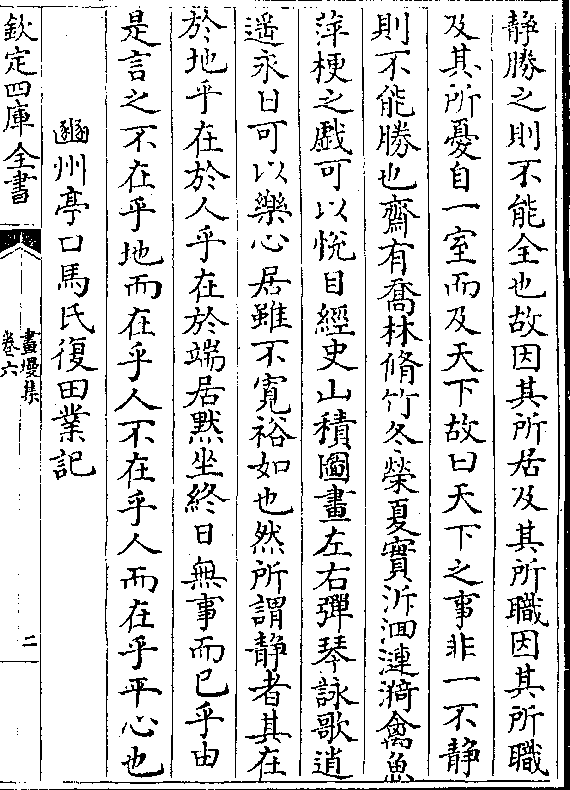 静勝之則不能全也故因其所居及其所職因其所職
及其所憂自一室而及天下故曰天下之事非一不静
則不能勝也齋有喬林脩竹冬榮夏實泝洄漣漪禽魚
萍梗之戯可以悦目經史山積圖畫左右彈琴詠歌逍
遥永日可以樂心居雖不寛裕如也然所謂静者其在
於地乎在於人乎在於端居黙坐終日無事而已乎由
是言之不在乎地而在乎人不在乎人而在乎平心也
豳州亭口馬氏復田業記
欽定四庫全書
畫墁集
卷六
二